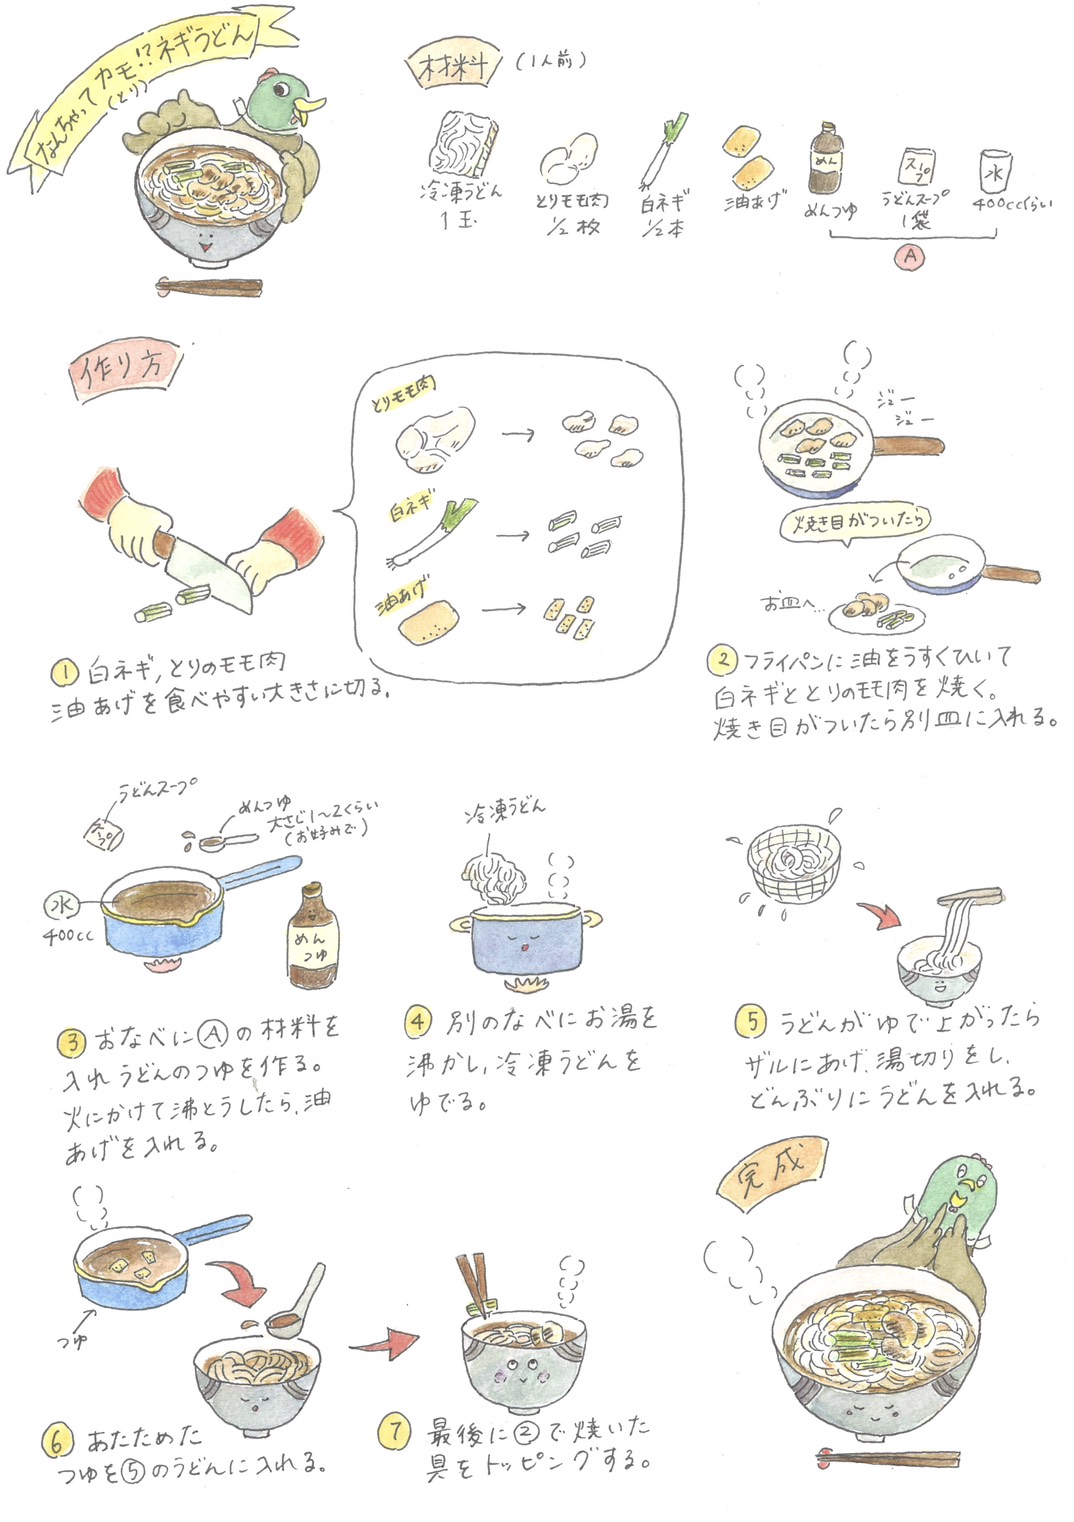 なんちゃってカモ!?ネギうどん
(とり)
材料 (1人前)
冷凍うどん
1玉
とりモモ肉
1/2枚
白ネギ
1/2本
油あげ
めん
めんつゆ
スープ
うどんスープ
1袋
水
400ccくらい
A
作り方
とりモモ肉
白ネギ
油あげ
① 白ネギ,とりのモモ肉
油あげを食べやすい大きさに切る。
ジュー
ジュー
焼き目がついたら
お皿へ...
② フライパンに油をうすくひいて
白ネギととりのモモ肉を焼く。
焼き目がついたら別皿に入れる。
うどんスープ
スープ
めんつゆ
大さじ1〜2くらい
(お好みで)
水
400cc
めん
つゆ
③ おなべにⒶの材料を
入れうどんのつゆを作る。
火にかけて沸とうしたら、油
あげを入れる。
冷凍うどん
④ 別のなべにお湯を
沸かし,冷凍うどんを
ゆでる。
⑤ うどんがゆで上がったら
ザルにあげ、湯切りをし、
どんぶりにうどんを入れる。
つゆ
⑥ あたためた
つゆを⑤のうどんに入れる。
⑦ 最後に②で焼いた
具をトッピングする。
完成